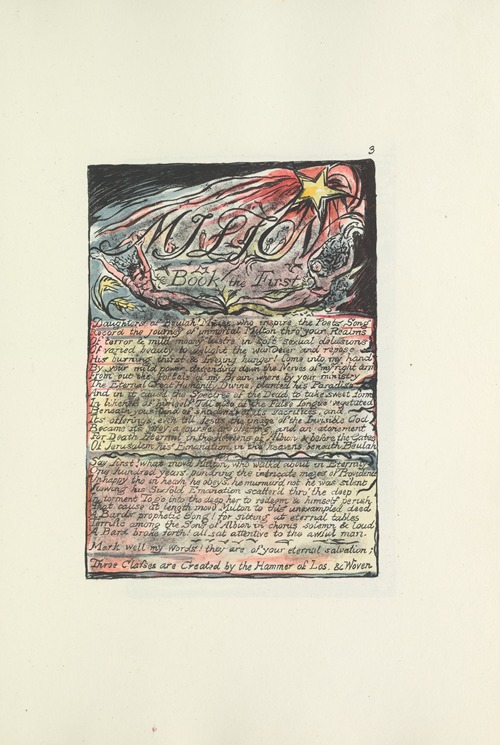 3
MILTON
Book the First
Daughters of Beulah! Muses who inspire the Poets Song
Record the journey of immortal Milton thro' your Realms
Of terror & mild moony lustre, in soft sexual delusions
Of varied beauty, to delight the wanderer and repose
His burning thirst & freezing hunger! Come into my hand
By your mild power; descending down the Nerves of my right arm
From out the Portals of my Brain, where by your ministry
The Eternal Great Humanity Divine. planted his Paradise,
And in it caus'd the Spectres of the Dead to take sweet forms
In likeness of himself. Tell also of the False Tongue! vegetated
Beneath your land of shadows: of its sacrifices, and
Its offerings; even till Jesus, the image of the Invisible God
Became its prey; a curse, an offering, and an atonement,
For Death Eternal in the heavens of Albion, & before the Gates
Of Jerusalem his Emanation, in the heavens beneath Beulah
Say first! what mov'd Milton, who walkd about in Eternity
One hundred years, pondring the intricate mazes of Providence
Unhappy tho in heav'n, he obey'd, he murmur'd not. he was silent
Viewing his Sixfold Emanation scatter'd thro' the deep
In torment! To go into the deep her to redeem & himself perish?
That cause at length mov'd Milton to this unexampled deed
A Bards prophetic Song! for sitting at eternal tables,
Terrific among the Sons of Albion in chorus solemn & loud
A Bard broke forth! all sat attentive to the awful man.
Mark well my words! they are of your eternal salvation:
Three Classes are Created by the Hammer of Los, & Woven